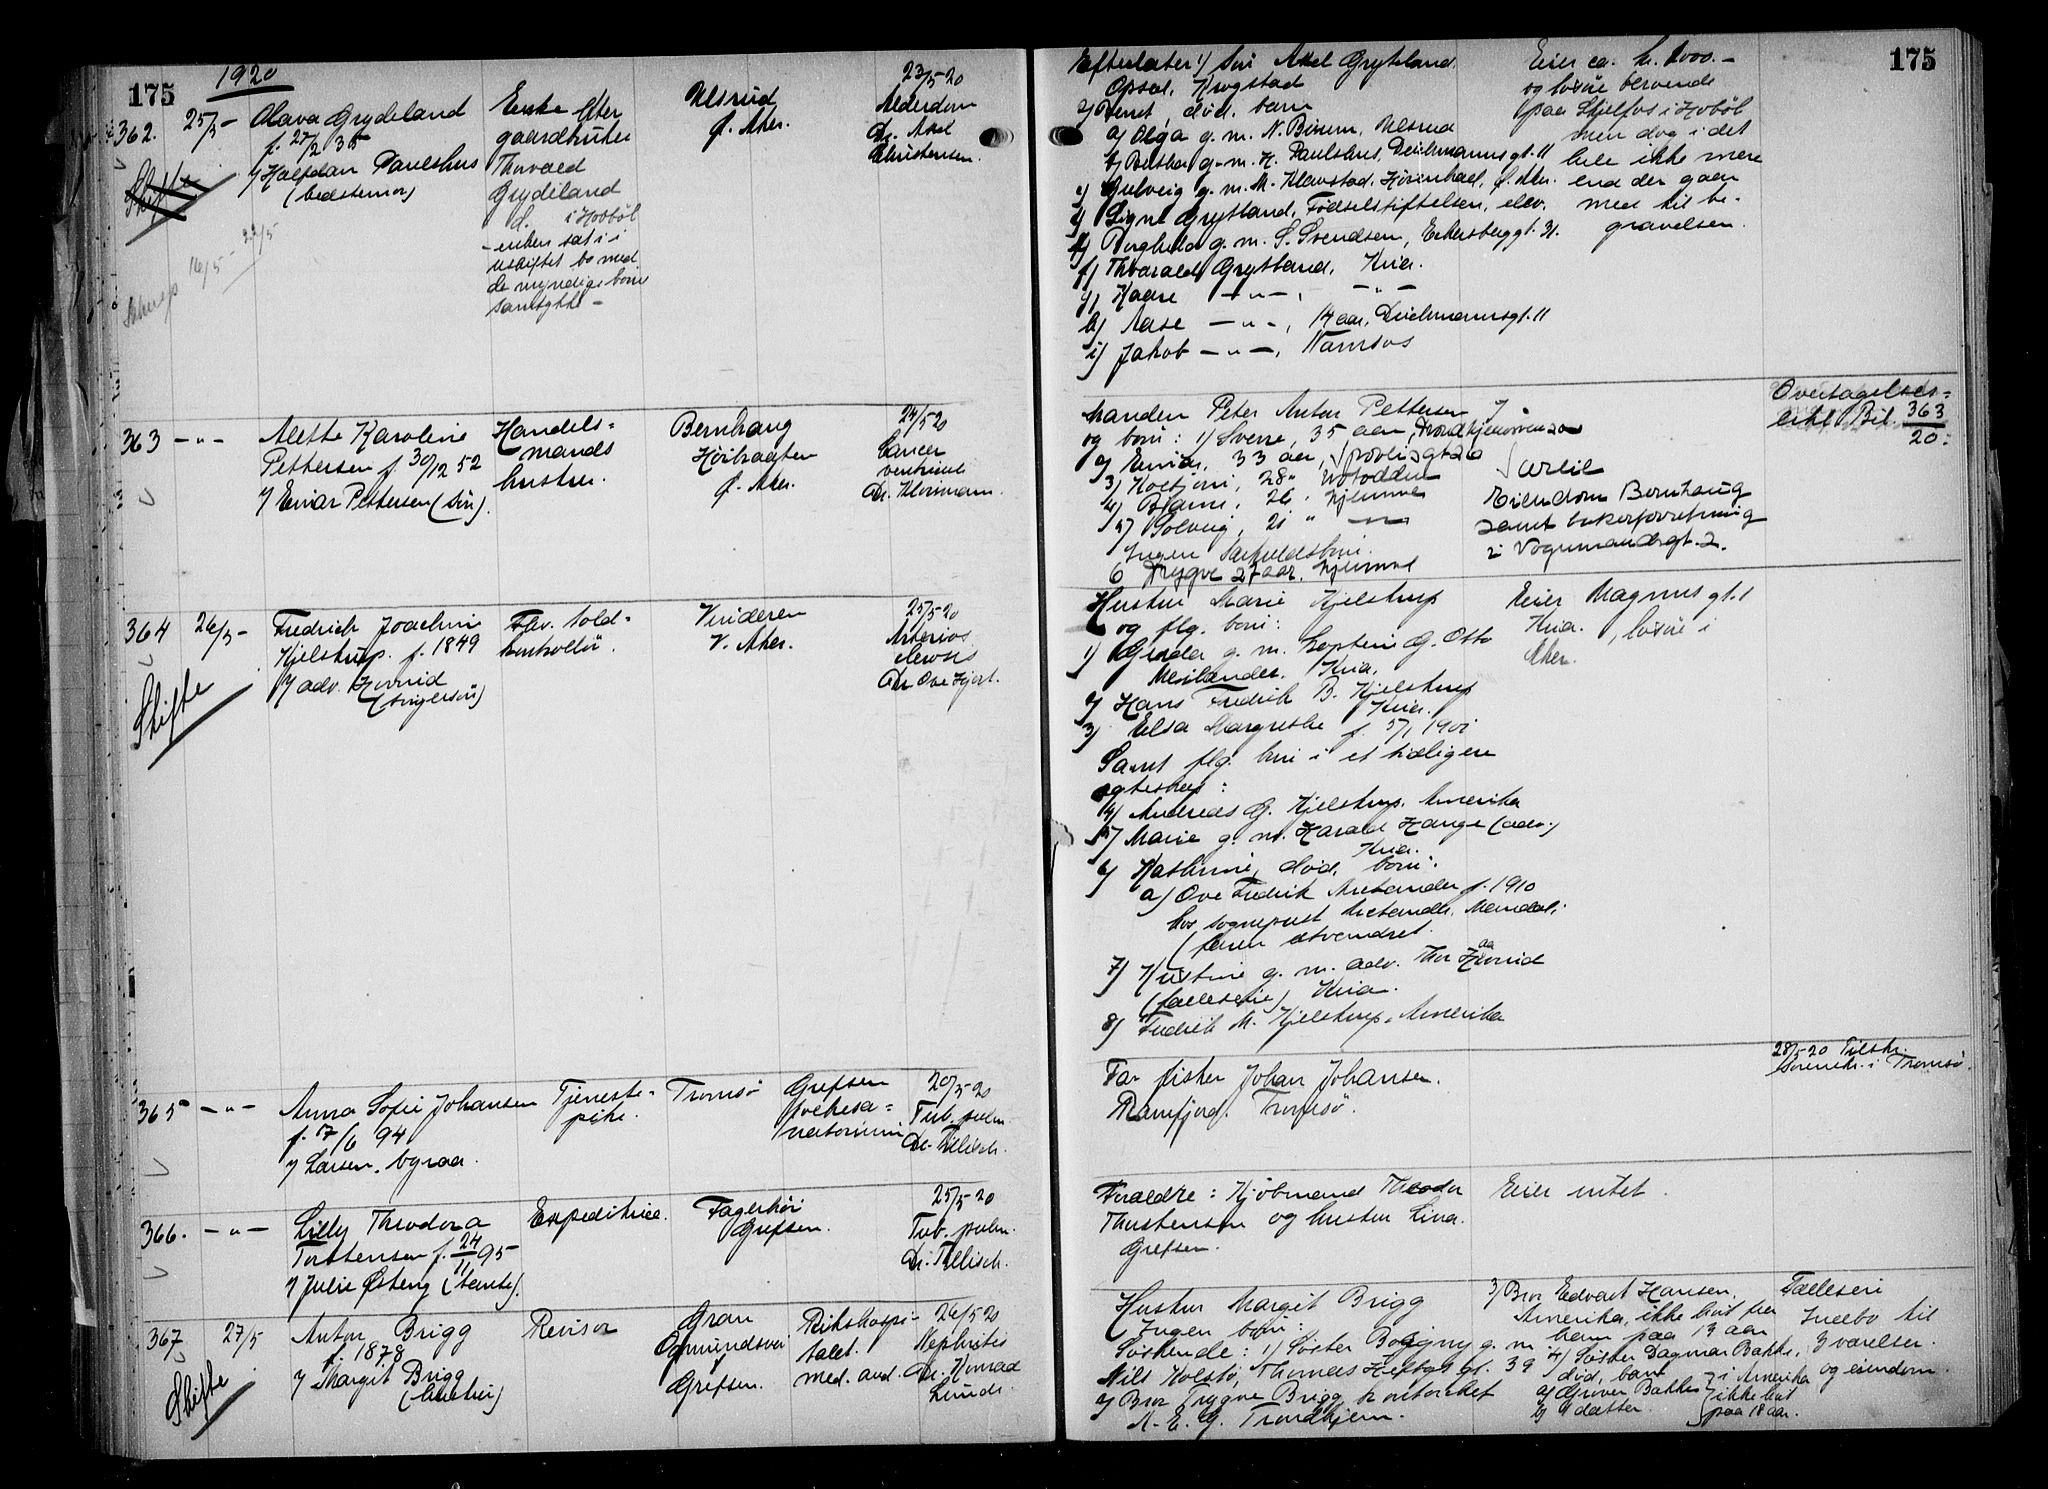 175
1920
362.
25/5 -
Olava Grydeland
f. 27/2 35
v/ Halfdan Paulshus
(bedstemor)
Skifte
16/5 - 22/5
Enke efter
gaardbruker
Thorvald
Grydeland
d. i Hobøl
- enken sat i
uskiftet bo med
de myndige børns
samtykke -
Ulsrud
Ø. Aker.
23/5 20
Alderdom
Dr. Axel
Christensen.
363
- " -
Alette Karoline
Pettersen f. 30/12 52
v/ Einar Pettersen (søn).
Handels-
mands
hustru.
Bernhaug
Høibraaten
Ø. Aker.
24/5 20
Cancer
ventriculi
364
26/5 -
Fredrich Joachim
Kjelstrup. f. 1849
v/ adv. Hornid
(svigersøn)
Skifte
Fhv. told-
kontrollør.
Vinderen
V. Aker.
25/5 20
Arterios
clerosis
Dr Ove Hjort.
365
- " -
Anna Sofie Johansen
f. 17/6 94
v/ Larsen, byraa.
Tjeneste-
pike.
Tromsø
Grefsen
folkesa-
natorium
20/5 20
Tub. pulm.
Dr. Tillisch.
366.
- " -
Lilly Theodora
Torstensen f. 24/11 95
v/ Julie Østeng (tante).
Expeditrice.
Fagerhøi
Grefsen.
25/5 20
Tub. pulm.
Dr. Tillisch.
367
27/5
Anton Brigg
f. 1878
v/ Margit Brigg
(hustru)
Skifte
Revisor
Gran
Ogmundsvei
Grefsen.
Rikshospi-
talet.
med. avd.
26/5 20
Nephritis
Dr. Konrad
Lunde.
175
Efterlater 1) Søn Axel Gryteland
Opsal, Krogstad
2) Bernt, død, barn
a) Olga g. m. N. Bisum, Ulsrud
b) Bertha g. m. H. Paulshus, Deichmannsgt. 11
c) Gulveig g. m. M. Klavstad, Ø. Aker.
d) Signe Grytland, Fødselstiftelsen, elev.
e) Borghild g. m. S. Svendsen, Eckersberggt.
f) Thorald Grytland, Kria.
g) Kaare - " -, - " -
h) Aase - " -, 14 aar, Deichmannsgt. 11
i) Jakob - " -, Namsos
Eier ca. kr. 1000.-
og løsøre beroende
paa Skjelfos i Hobøl
men dog i det
hele ikke mere
end der gaar
med til be-
gravelsen.
Manden Peter Anton Pettersen
og børn: 1) Sverre, 35 aar,
2) Einar, 33 aar,
3) Hoffjon, 28 " Notodden
4) Bjarne, 26 " hjemme
5) Solveig, 21 " - " -
Ingen særkuldsbørn.
6 Trygve 27 aar, hjemme
Eiendom Bernhaug
samt bakerforretning
i Vognmandsgt. 2.
Overtagelses-
erkl. Bil. 363/20.
Hustru Marie Kjelstrup
og flg. børn:
1) Gerda g. m. kaptein G. Otto
Meilænder. Kria.
2) Hans Fredrik B. Kjelstrup
Kria.
3) Elsa Margrethe f. 5/1 1901
Samt flg. børn i et tidligere
egteskap:
4) Andreas G. Kjelstrup, Amerika
5) Marie g. m. Harald Hauge (adv.)
Kria.
6) Kathrine, død, børn:
a) Ove Fredrik f. 1910
hos sogneprest Mandal,
(faren utvandret.
7) Kristine g. m. adv. Thor Hornid
(fælleseie) Kria.
8) Fredrik M. Kjelstrup, Amerika
Eier Magnus gt. 1
Kria., løsøre i
Aker.
Far fisker Johan Johansen.
Ramfjord. Tromsø.
28/5-20 Tilskr.
sorenskr. i Tromsø.
Foræeldre: Kjøbmand Theodor
Thorstensen og hustru Lina.
Grefsen.
Eier intet.
Hustru Margit Brigg
Ingen børn:
Søskende: 1) Søster Borgny g. m.
Nils Holstø, Thomas Heftyes gt. 39
2) Bror Trygve Brigg, kontorchef
A. E. G. Trondhjem.
3) Bror Edvart Hansen,
Amerika, ikke hørt fra
ham paa 13 aar
4) Søster Dagmar Bakke,
død, barn
a) Grover Bakke
b) 1 datter.
i Amerika
ikke hørt
paa 18 aar.
Fælleseie
Indbo til
3 værelser
og eiendom.